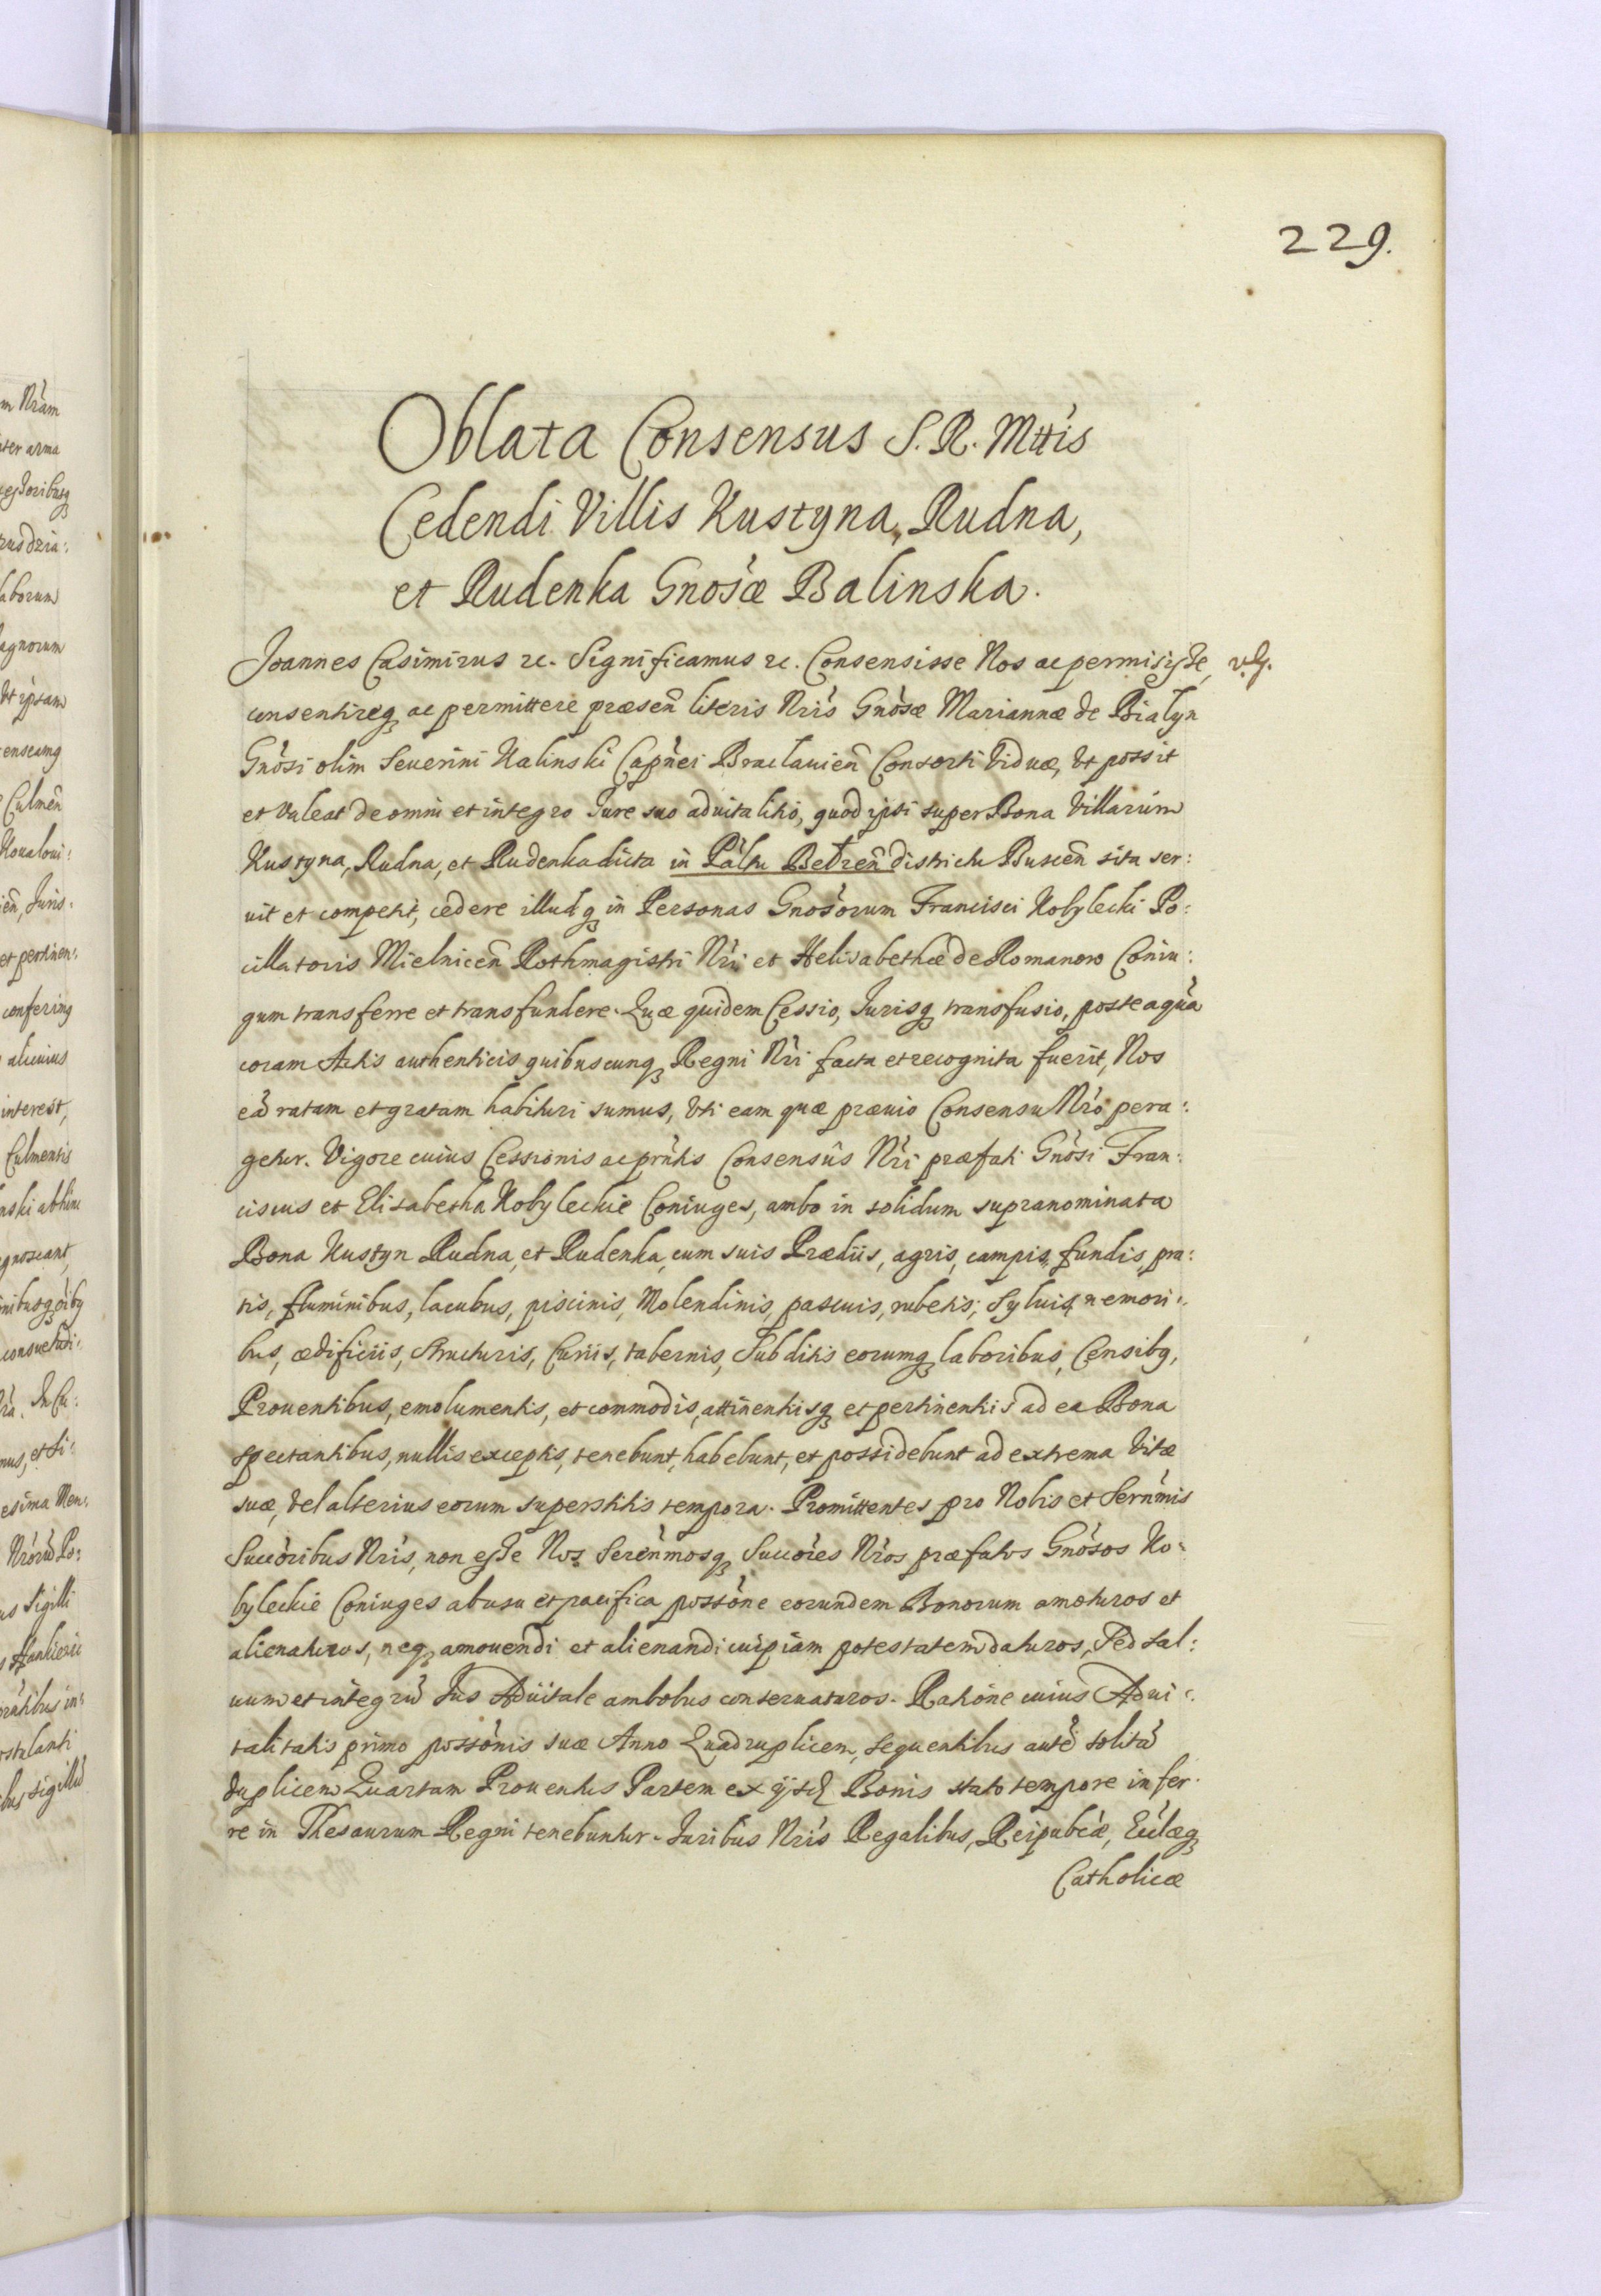 229.
Oblata Consensus S. R. Mttis
Cedendi Villis Kustyna, Rudna,
et Rudenka Gnosæ Balinska.
Joannes Casimirus rc. Significamus rc. Consensisse Nos ac permisisse,
consentireq ac permittere præsen̄ literis Nris Gnosæ Mariannæ de Bialyn
Gnosi olim Seuerini Kalinski Capnei Braclauien̄ Consorti Viduæ, Vt possit
et Valeat de omni et integro Jure suo aduitalitio, quod ipsi super Bona Villarum
Kustyna, Rudna, et Rudenka dicta in Paltu Bełzen̄ districtu Buscen̄ sita ser:
uit et competit, cedere illudq in Personas Gnosorum Francisci Kobylecki Po:
cillatoris Mielnicen̄ Rothmagistri Nri et Helisabethæ de Romanow Coniu:
gum transferre et transfundere. Quæ quidem Cessio, Jurisq transfusio, posteaquā
coram Actis authenticis quibuscunq Regni Nri facta et recognita fuerit, Nos
eā ratam et gratam habituri sumus, Vti eam quæ præuio Consensu Nro pera:
getur. Vigore cuius Cessionis ac prntis Consensûs Nri præfati Gnosi Fran:
ciscus et Elisabetha Kobyleckie Coniuges, ambo in solidum supranominata
Bona Kustyn Rudna, et Rudenka, cum suis Prædiis, agris, campis, fundis, pra:
tis, fluminibus, lacubus, piscinis, Molendinis, pascuis, rubetis, Syluis, nemori:
bus, ædificiis, structuris, Curiis, tabernis, Subditis eorumq laboribus, Censibq,
Prouentibus, emolumentis, et commodis, attinentiisq et pertinentiis ad ea Bona
spectantibus, nullis exceptis, tenebunt, habebunt, et possidebunt ad extrema Vitæ
suæ, Vel alterius eorum superstitis tempora. Promittentes pro Nobis et Sernmis
Succoribus Nris, non esse Nos Serenmosq Succores Nros præfatos Gnosos Ko:
byleckie Coniuges ab usu et pacifica possone eorundem Bonorum amoturos et
alienaturos, neq amouendi et alienandi cuipiam potestatem daturos, Sed sal:
uum et integrū Jus Aduitale ambobus conseruaturos. Ratione cuius Adui:
talitatis primo possonis suæ Anno Quadruplicem, sequentibus autē solitā
duplicem Quartam Prouentus Partem ex ijsd Bonis stato tempore infer:
re in Thesaurum Regni tenebuntur. Juribus Nris Regalibus, Reipubcæ, Ecclæq
Catholicæ